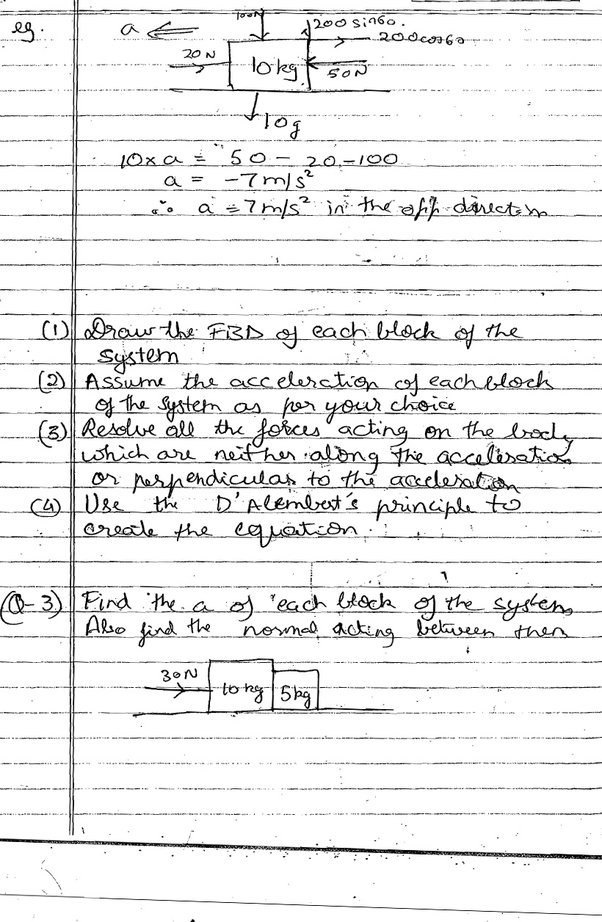 eg.
a
100N
200 sin60.
200cos60
20N
10kg
50N
10g
10×a = 50 - 20 - 100
a = -7m/s²
∴ a = 7m/s² in the opp direction
(1) Draw the FBD of each block of the
system
(2) Assume the acceleration of each block
of the system as per your choice
(3) Resolve all the forces acting on the body
which are neither along the acceleration
or perpendicular to the acceleration
(4) Use the D'Alembert's principle to
create the equation.
(Q-3) Find the a of each block of the system
Also find the normal acting between then
30N
10kg
5kg